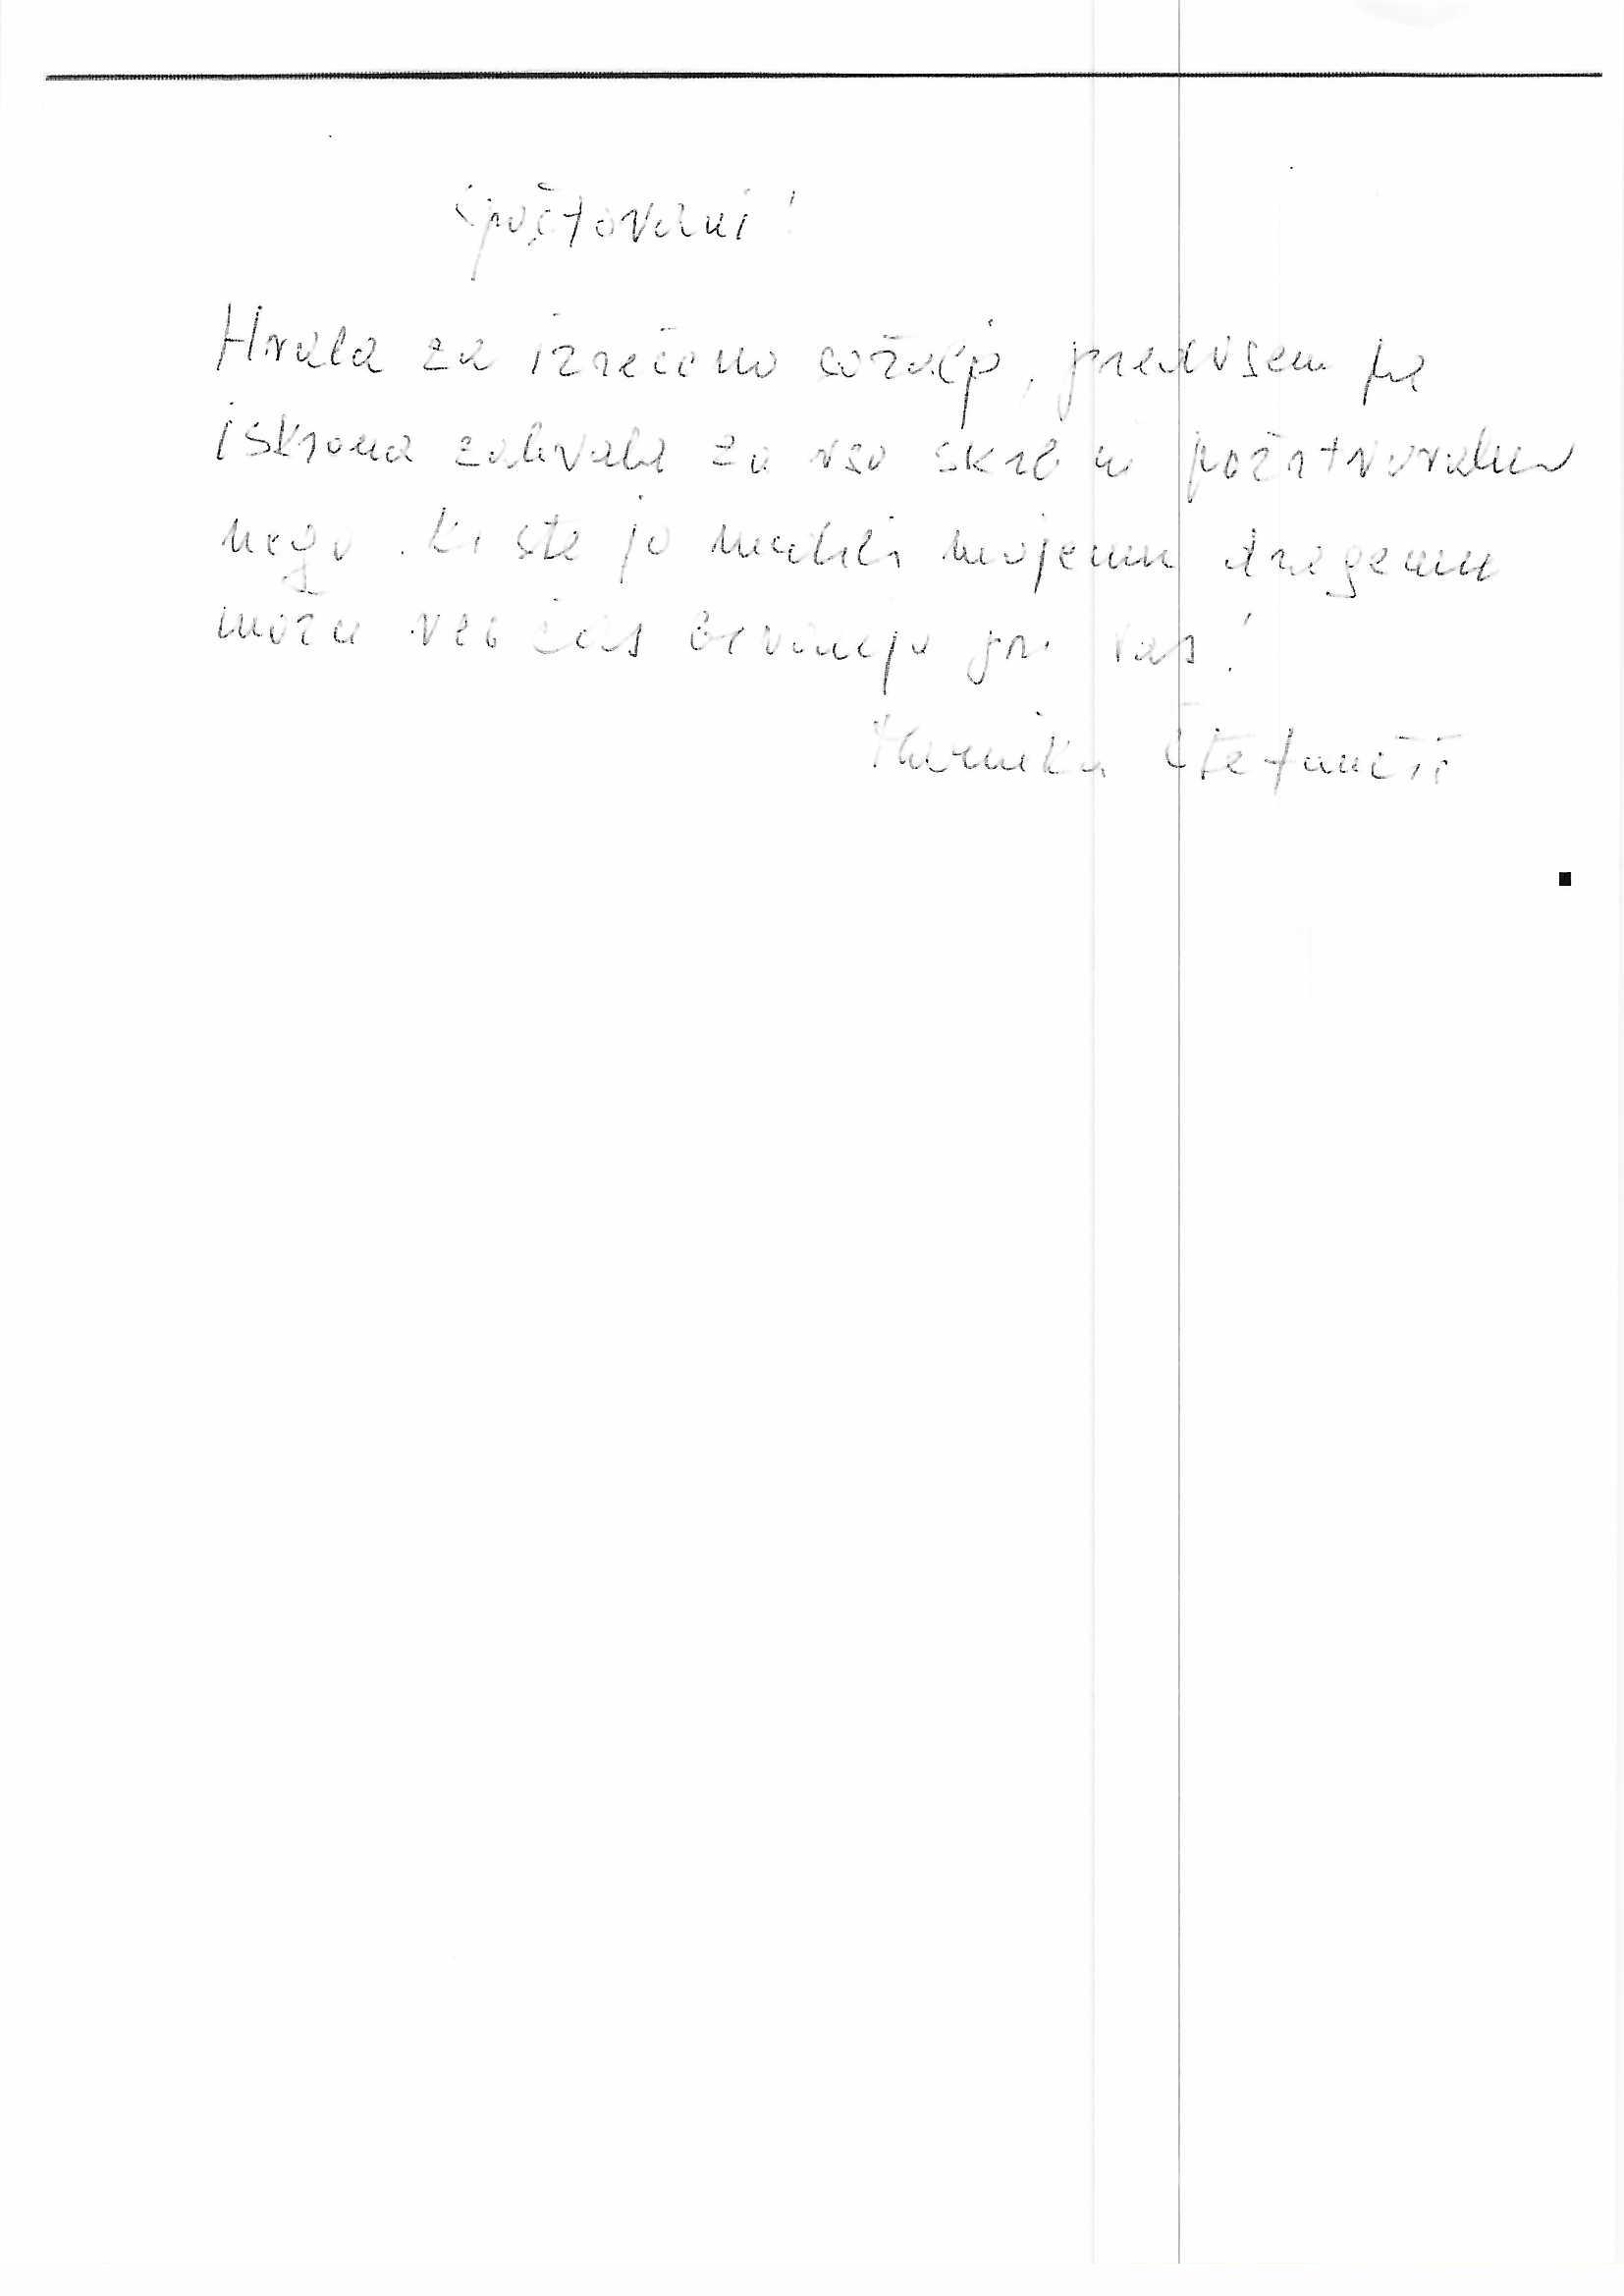 Spoštovani!
Hvala za izrečeno sožalje, predvsem pa
iskrena zahvala za vso skrb in požrtvovalno
nego, ki ste jo nudili mojemu dragemu
možu ves čas bivanja pri vas!
Štefančič